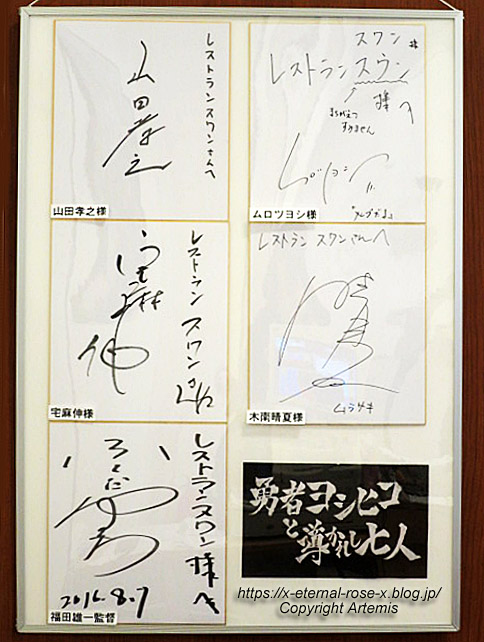 レストランスワンさんへ
山田孝之
山田孝之様
スワン 様
レストランスウン
様へ
まちがえて
すみません
ムロツヨシ
ムロツヨシ様
レストラン スワン さんへ
宅麻伸
宅麻伸様
レストラン スワン さんへ
ムラサキ
木南晴夏様
レストランスワン様へ
2016.8.7
福田雄一監督
勇者ヨシヒコ
と導かれし七人
https://x-eternal-rose-x.blog.jp/
Copyright Artemis